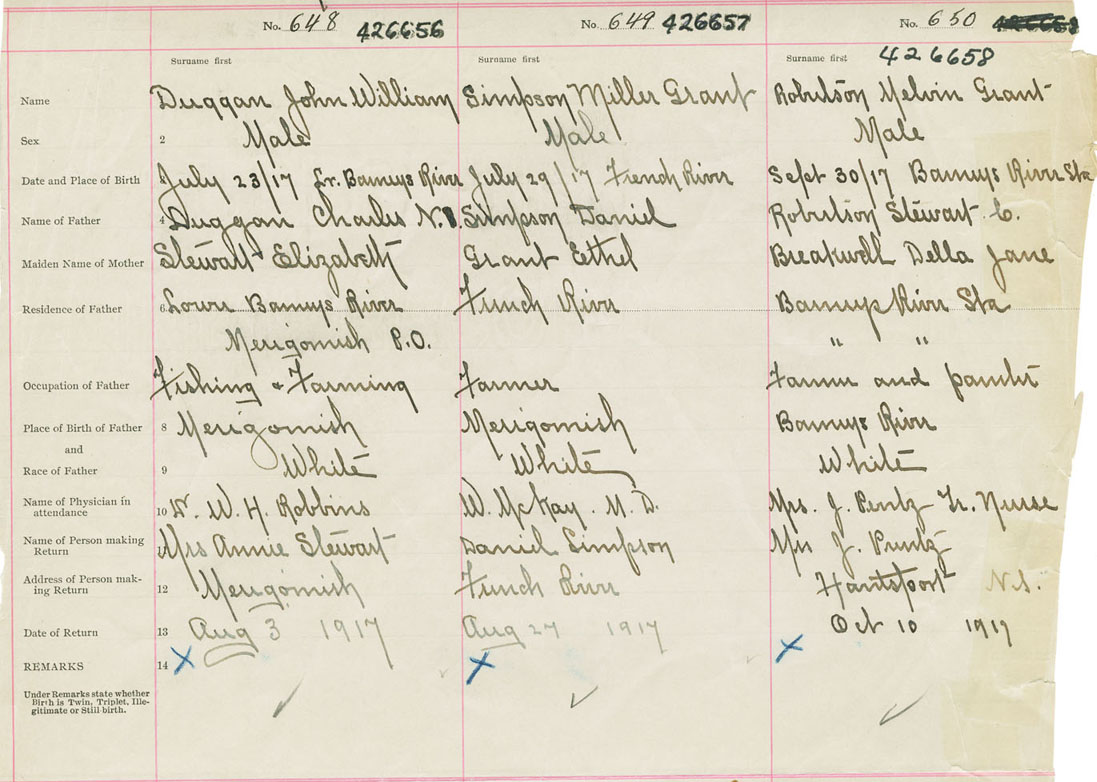 No. 648 426656 No. 649 426657 No. 650
426658
Surname first Surname first Surname first
Name Duggan John William Simpson Miller Grant Robertson Melvin Grant
Sex 2 Male Male Male
Date and Place of Birth July 23/17 Lr. Barneys River July 29/17 French River Sept 30/17 Barneys River Sta
Name of Father 4 Duggan Charles N. Simpson Daniel Robertson Stewart C.
Maiden Name of Mother Stewart Elizabeth Grant Ethel Breakwell Della Jane
Residence of Father 6 Lower Barneys River French River Barneys River Sta
Merigomish P.O. " "
Occupation of Father Fishing & Farming Farmer Farmer and painter
Place of Birth of Father 8 Merigomish Merigomish Barneys River
and
Race of Father 9 White White White
Name of Physician in
attendance 10 Dr. W. H. Robbins W. McKay. M. D. Mrs. J. Pentz Tr. Nurse
Name of Person making
Return 11 Mrs Annie Stewart Daniel Simpson Mrs J. Pentz
Address of Person mak-
ing Return 12 Merigomish French River Hantsport N.S.
Date of Return 13 Aug 3 1917 Aug 27 1917 Oct 10 1917
REMARKS 14 X X X
Under Remarks state whether
Birth is Twin, Triplet, Ille-
gitimate or Still-birth.